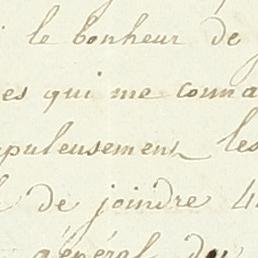 le bonheur de
es qui me conna
puleusement les
de joindre
général du